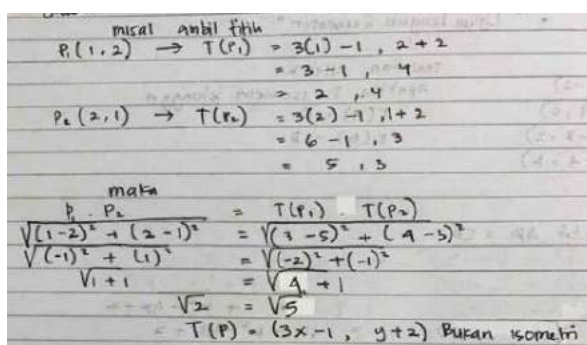 misal ambil titik
P₁(1,2) → T(P₁) = 3(1) - 1 , 2 + 2
= 3 - 1 , 4
= 2 , 4
P₂(2,1) → T(P₂) = 3(2) - 1 , 1 + 2
= 6 - 1 , 3
= 5 , 3
maka
P₁ . P₂ = T(P₁) . T(P₂)
√(1-2)² + (2-1)² = √(3-5)² + (4-3)²
√(-1)² + (1)² = √(-2)² + (-1)²
√1 + 1 = √4 + 1
√2 = √5
= T(P) = (3x - 1 , y + 2) Bukan isometri